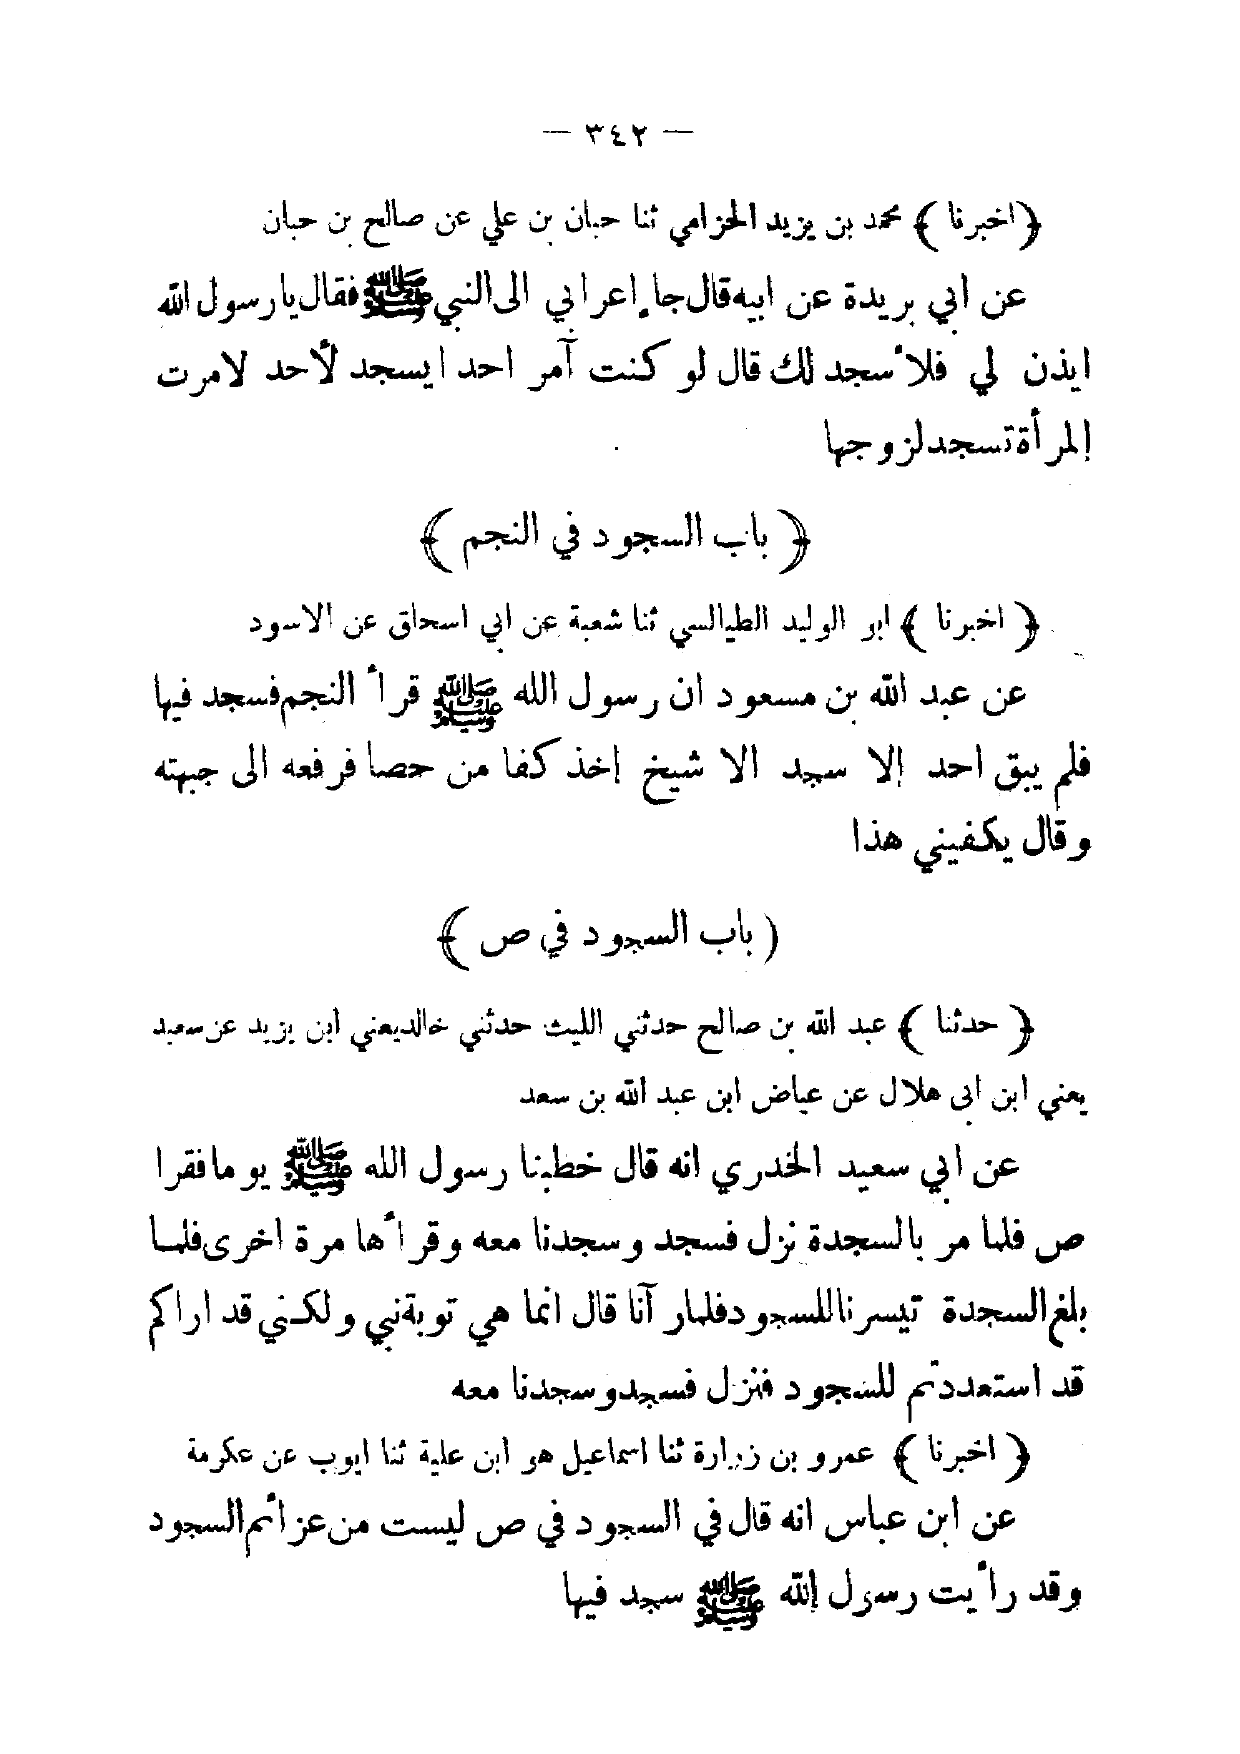 — ٣٤٢ —
﴿اخبرنا﴾ محمد بن يزيد الحزامي ثنا حبان بن علي عن صالح بن حبان
عن ابي بريدة عن ابيه قال جاء اعرابي الى النبي ﷺ فقال يا رسول الله
ايذن لي فلأسجد لك قال لو كنت آمر احد ايسجد لأحد لامرت
المرأة تسجد لزوجها
﴿ باب السجود في النجم ﴾
﴿ اخبرنا ﴾ ابو الوليد الطيالسي ثنا شعبة عن ابي اسحاق عن الاسود
عن عبد الله بن مسعود ان رسول الله ﷺ قرأ النجم فسجد فيها
فلم يبق احد إلا سجد الا شيخ إخذ كفا من حصا فرفعه الى جبهته
وقال يكفيني هذا
( باب السجود في ص ﴾
﴿ حدثنا ﴾ عبد الله بن صالح حدثني الليث حدثني خالد يعني ابن يزيد عن سعيد
يعني ابن ابى هلال عن عياض ابن عبد الله بن سعد
عن ابي سعيد الخدري انه قال خطبنا رسول الله ﷺ يوما فقرا
ص فلما مر بالسجدة نزل فسجد وسجدنا معه وقرأها مرة اخرى فلما
بلغ السجدة تيسرنا للسجود فلما رآنا قال انما هي توبة نبي ولكني قد اراكم
قد استعددتم للسجود فنزل فسجد وسجدنا معه
﴿ اخبرنا ﴾ عمرو بن زرارة ثنا اسماعيل هو ابن علية ثنا ايوب عن عكرمة
عن ابن عباس انه قال في السجود في ص ليست من عزائم السجود
وقد رأيت رسول الله ﷺ سجد فيها